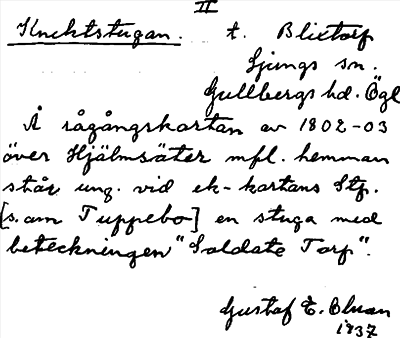 II
Knektstugan. t. Blixtorp
Ljungs sn.
Gullbergs hd. Ögl
Å rågångskartan av 1802-03
över Hjälmsäter mfl. hemman
står ung. vid ek-kartans Stp.
[s.om Tuppebo] en stuga med
beteckningen "Soldate Torp".
Gustaf E.
1937